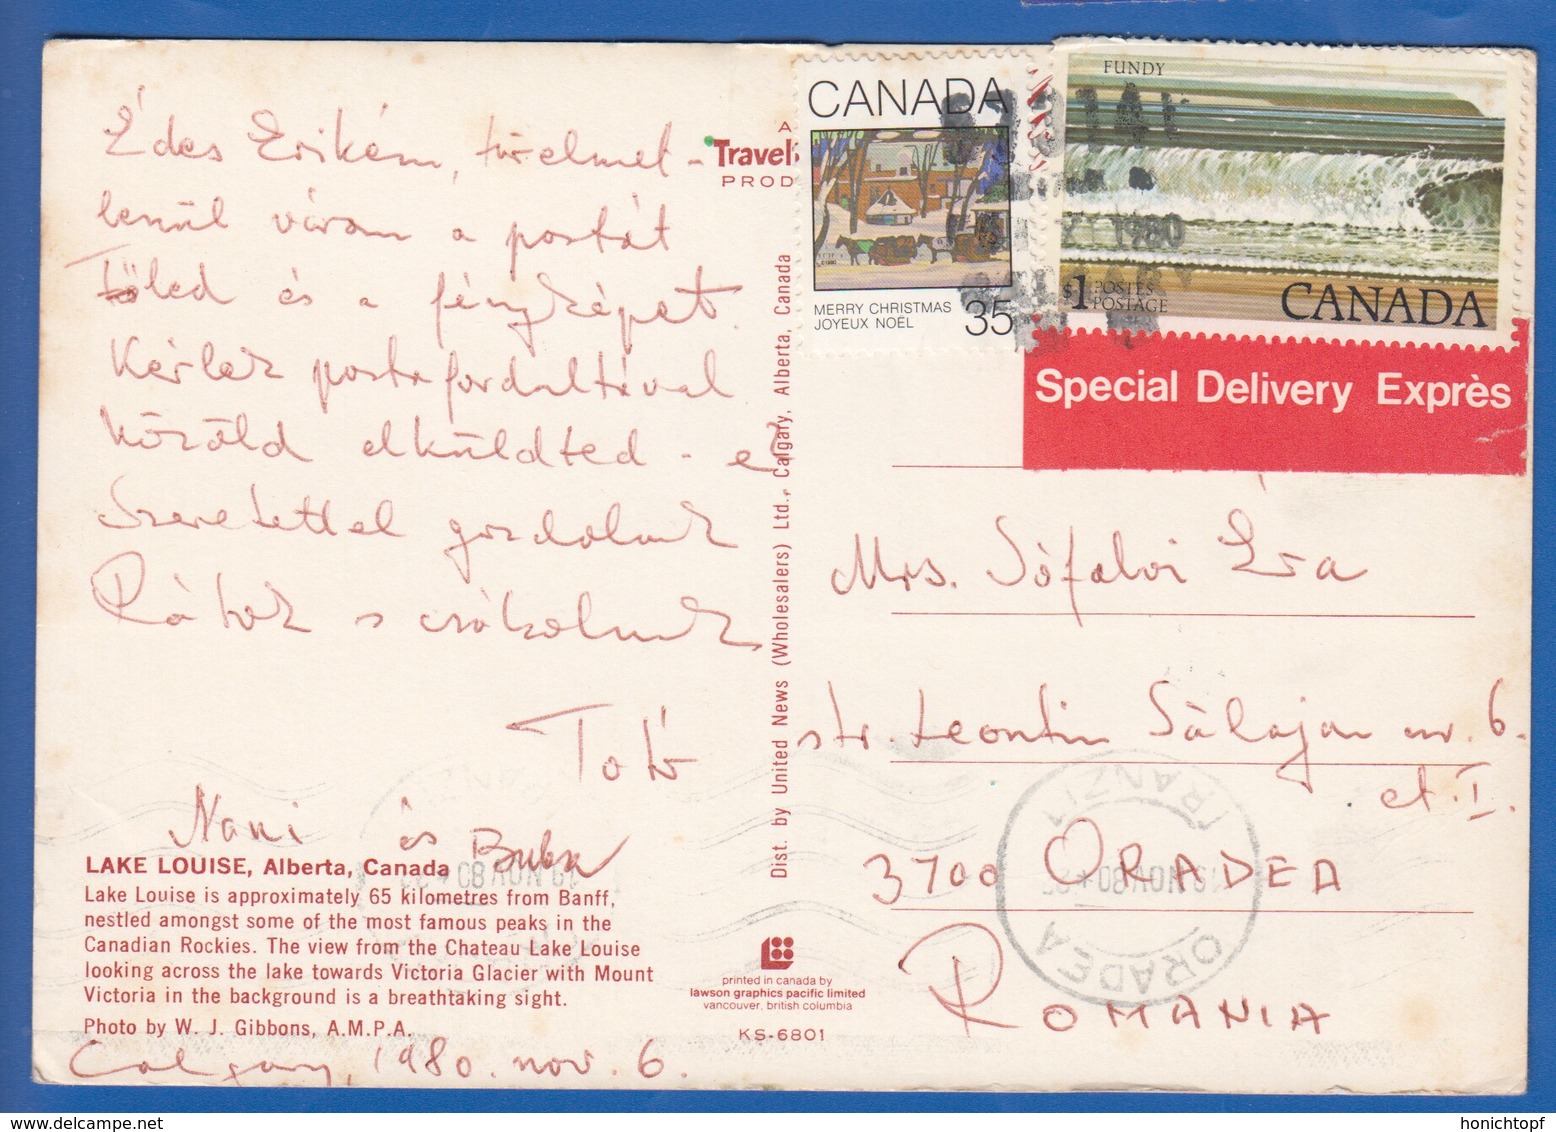 Édes Erikém, türelmet-
lenül várom a postát
Tőled és a fényképet.
Kérlek postafordultával
közöld elküldted-e?
Szeretettel gondolunk
Rátok s csókolunk
Totó
Nani és Buba
LAKE LOUISE, Alberta, Canada
Lake Louise is approximately 65 kilometres from Banff,
nestled amongst some of the most famous peaks in the
Canadian Rockies. The view from the Chateau Lake Louise
looking across the lake towards Victoria Glacier with Mount
Victoria in the background is a breathtaking sight.
Photo by W. J. Gibbons, A.M.P.A.
Calgary, 1980. nov. 6.
A
Travel
PROD
Dist. by United News (Wholesalers) Ltd., Calgary, Alberta, Canada
printed in canada by
lawson graphics pacific limited
vancouver, british columbia
KS-6801
CANADA
MERRY CHRISTMAS
JOYEUX NOËL
35
FUNDY
$1 POSTES
POSTAGE
CANADA
1980
CALGARY
Special Delivery Exprès
Mrs. Sófalvi Éva
str. Leontin Sălajan nr. 6.
et. I.
3700 ORADEA
ROMANIA
ORADEA
TRANZIT
19 NOV 80
honichtopf